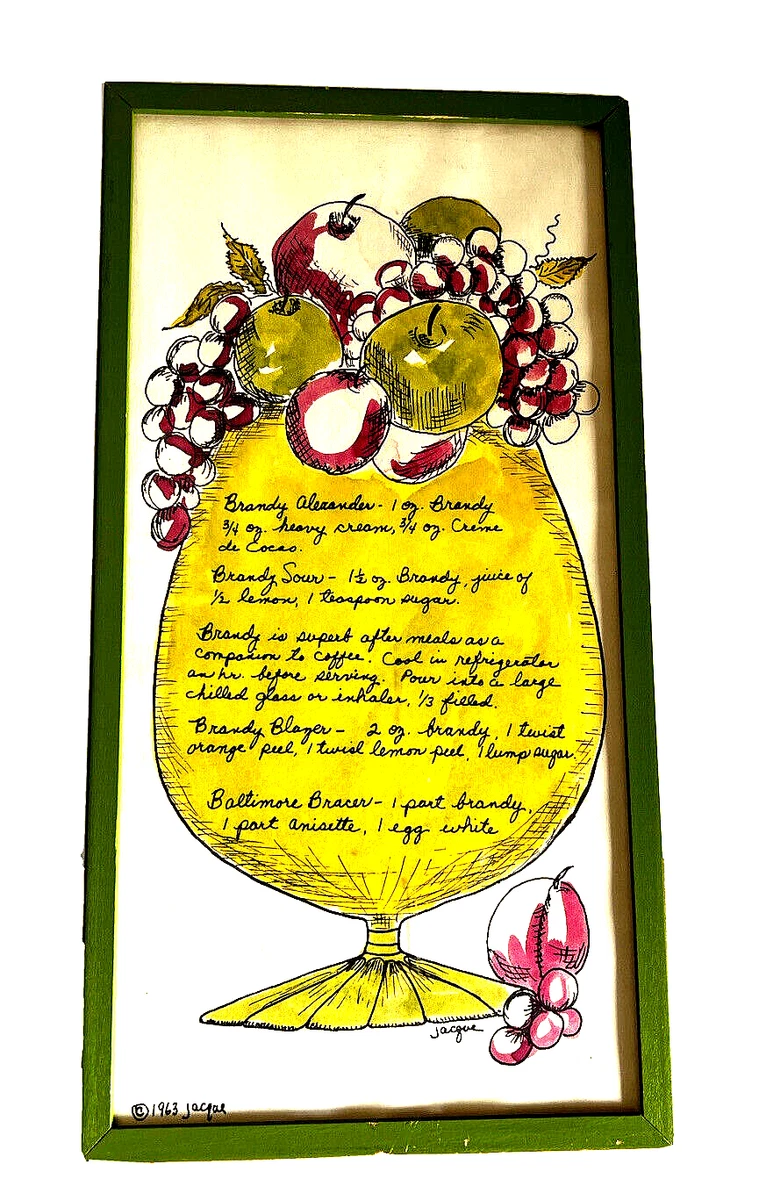 Brandy Alexander - 1 oz. Brandy
3/4 oz. heavy cream, 3/4 oz. Creme
de Cocao.
Brandy Sour - 1½ oz. Brandy, juice of
½ lemon, 1 teaspoon sugar.
Brandy is superb after meals as a
companion to coffee. Cool in refrigerator
an hr. before serving. Pour into a large
chilled glass or inhaler, 1/3 filled.
Brandy Blazer - 2 oz. brandy, 1 twist
orange peel, 1 twist lemon peel, 1 lump sugar.
Baltimore Bracer - 1 part brandy,
1 part anisette, 1 egg white
jacque
© 1963 jacque